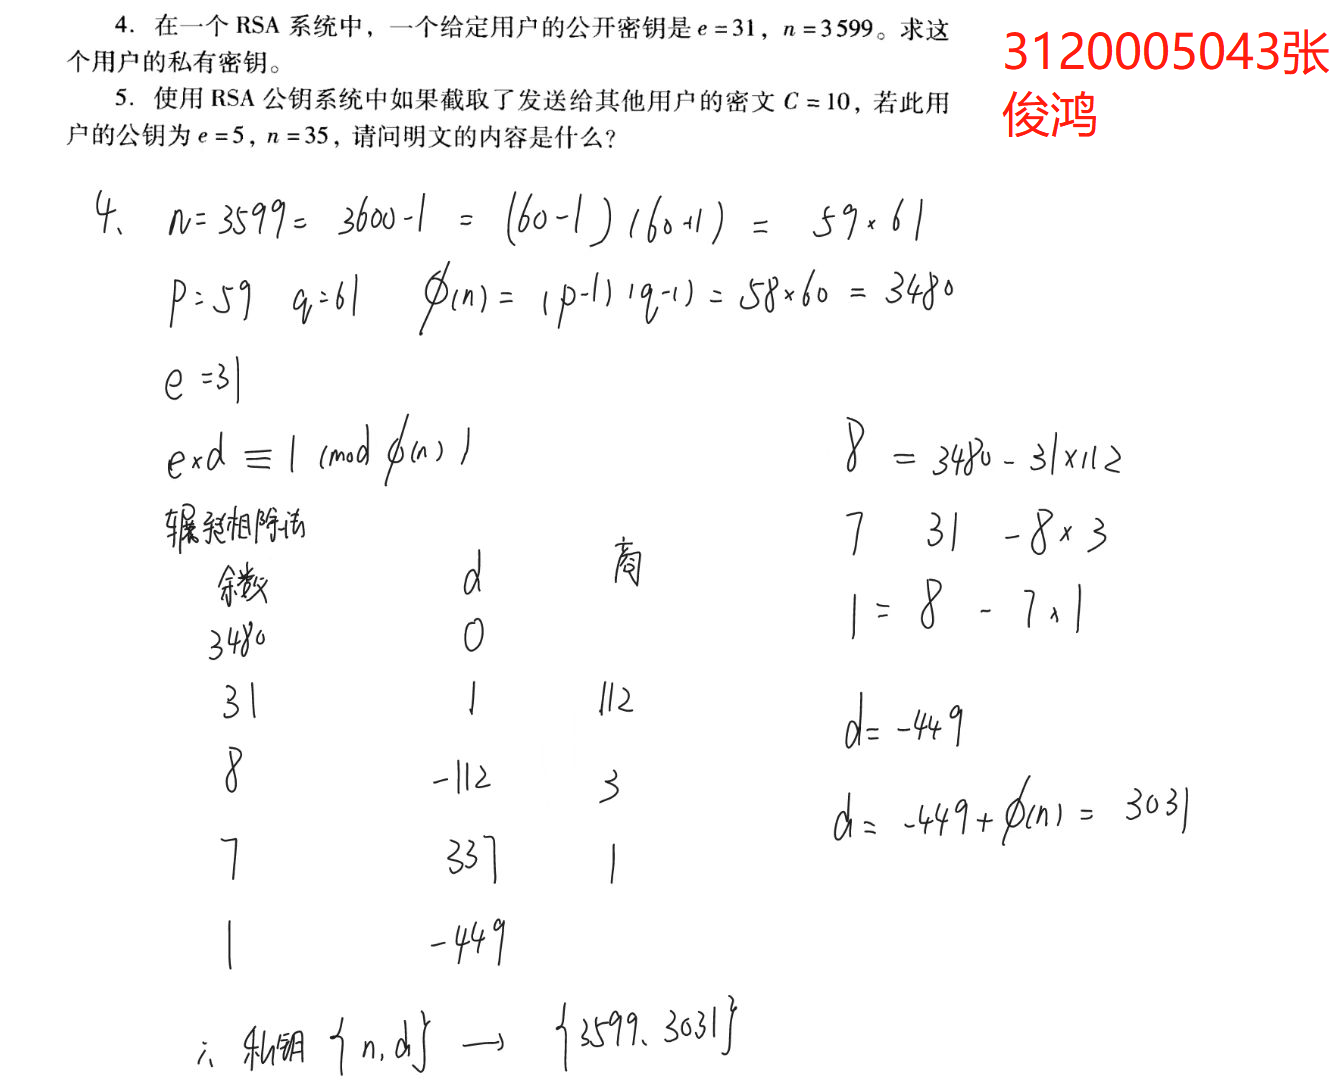 4. 在一个 RSA 系统中，一个给定用户的公开密钥是 e=31，n=3599。求这
个用户的私有密钥。
5. 使用 RSA 公钥系统中如果截取了发送给其他用户的密文 C=10，若此用
户的公钥为 e=5，n=35，请问明文的内容是什么？
3120005043张
俊鸿
4、 n=3599= 3600-1 = (60-1)(60+1) = 59×61
p=59 q=61 ϕ(n)=(p-1)(q-1)=58×60=3480
e=31
e×d≡1 (mod ϕ(n))
辗转相除法
余数 d 商
3480 0
31 1 112
8 -112 3
7 337 1
1 -449
8 = 3480-31×112
7 31 -8×3
1= 8 - 7×1
d=-449
d= -449+ϕ(n)= 3031
∴ 私钥{n,d} → {3599、3031}